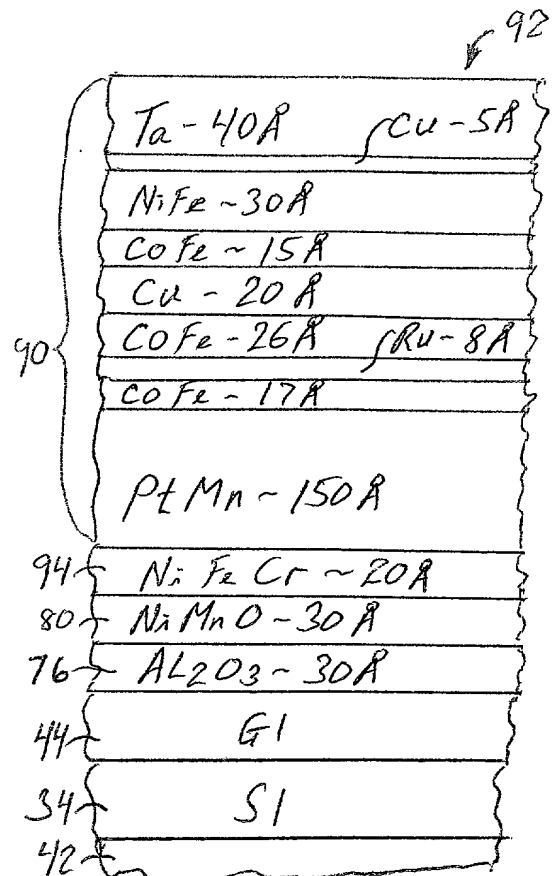 92
Ta - 40Å Cu - 5Å
NiFe ~ 30Å
CoFe ~ 15Å
Cu - 20Å
90 CoFe - 26Å Ru - 8Å
CoFe - 17Å
PtMn ~ 150Å
94 NiFeCr ~ 20Å
80 NiMnO - 30Å
76 AL2O3 ~ 30Å
44 G1
34 S1
42